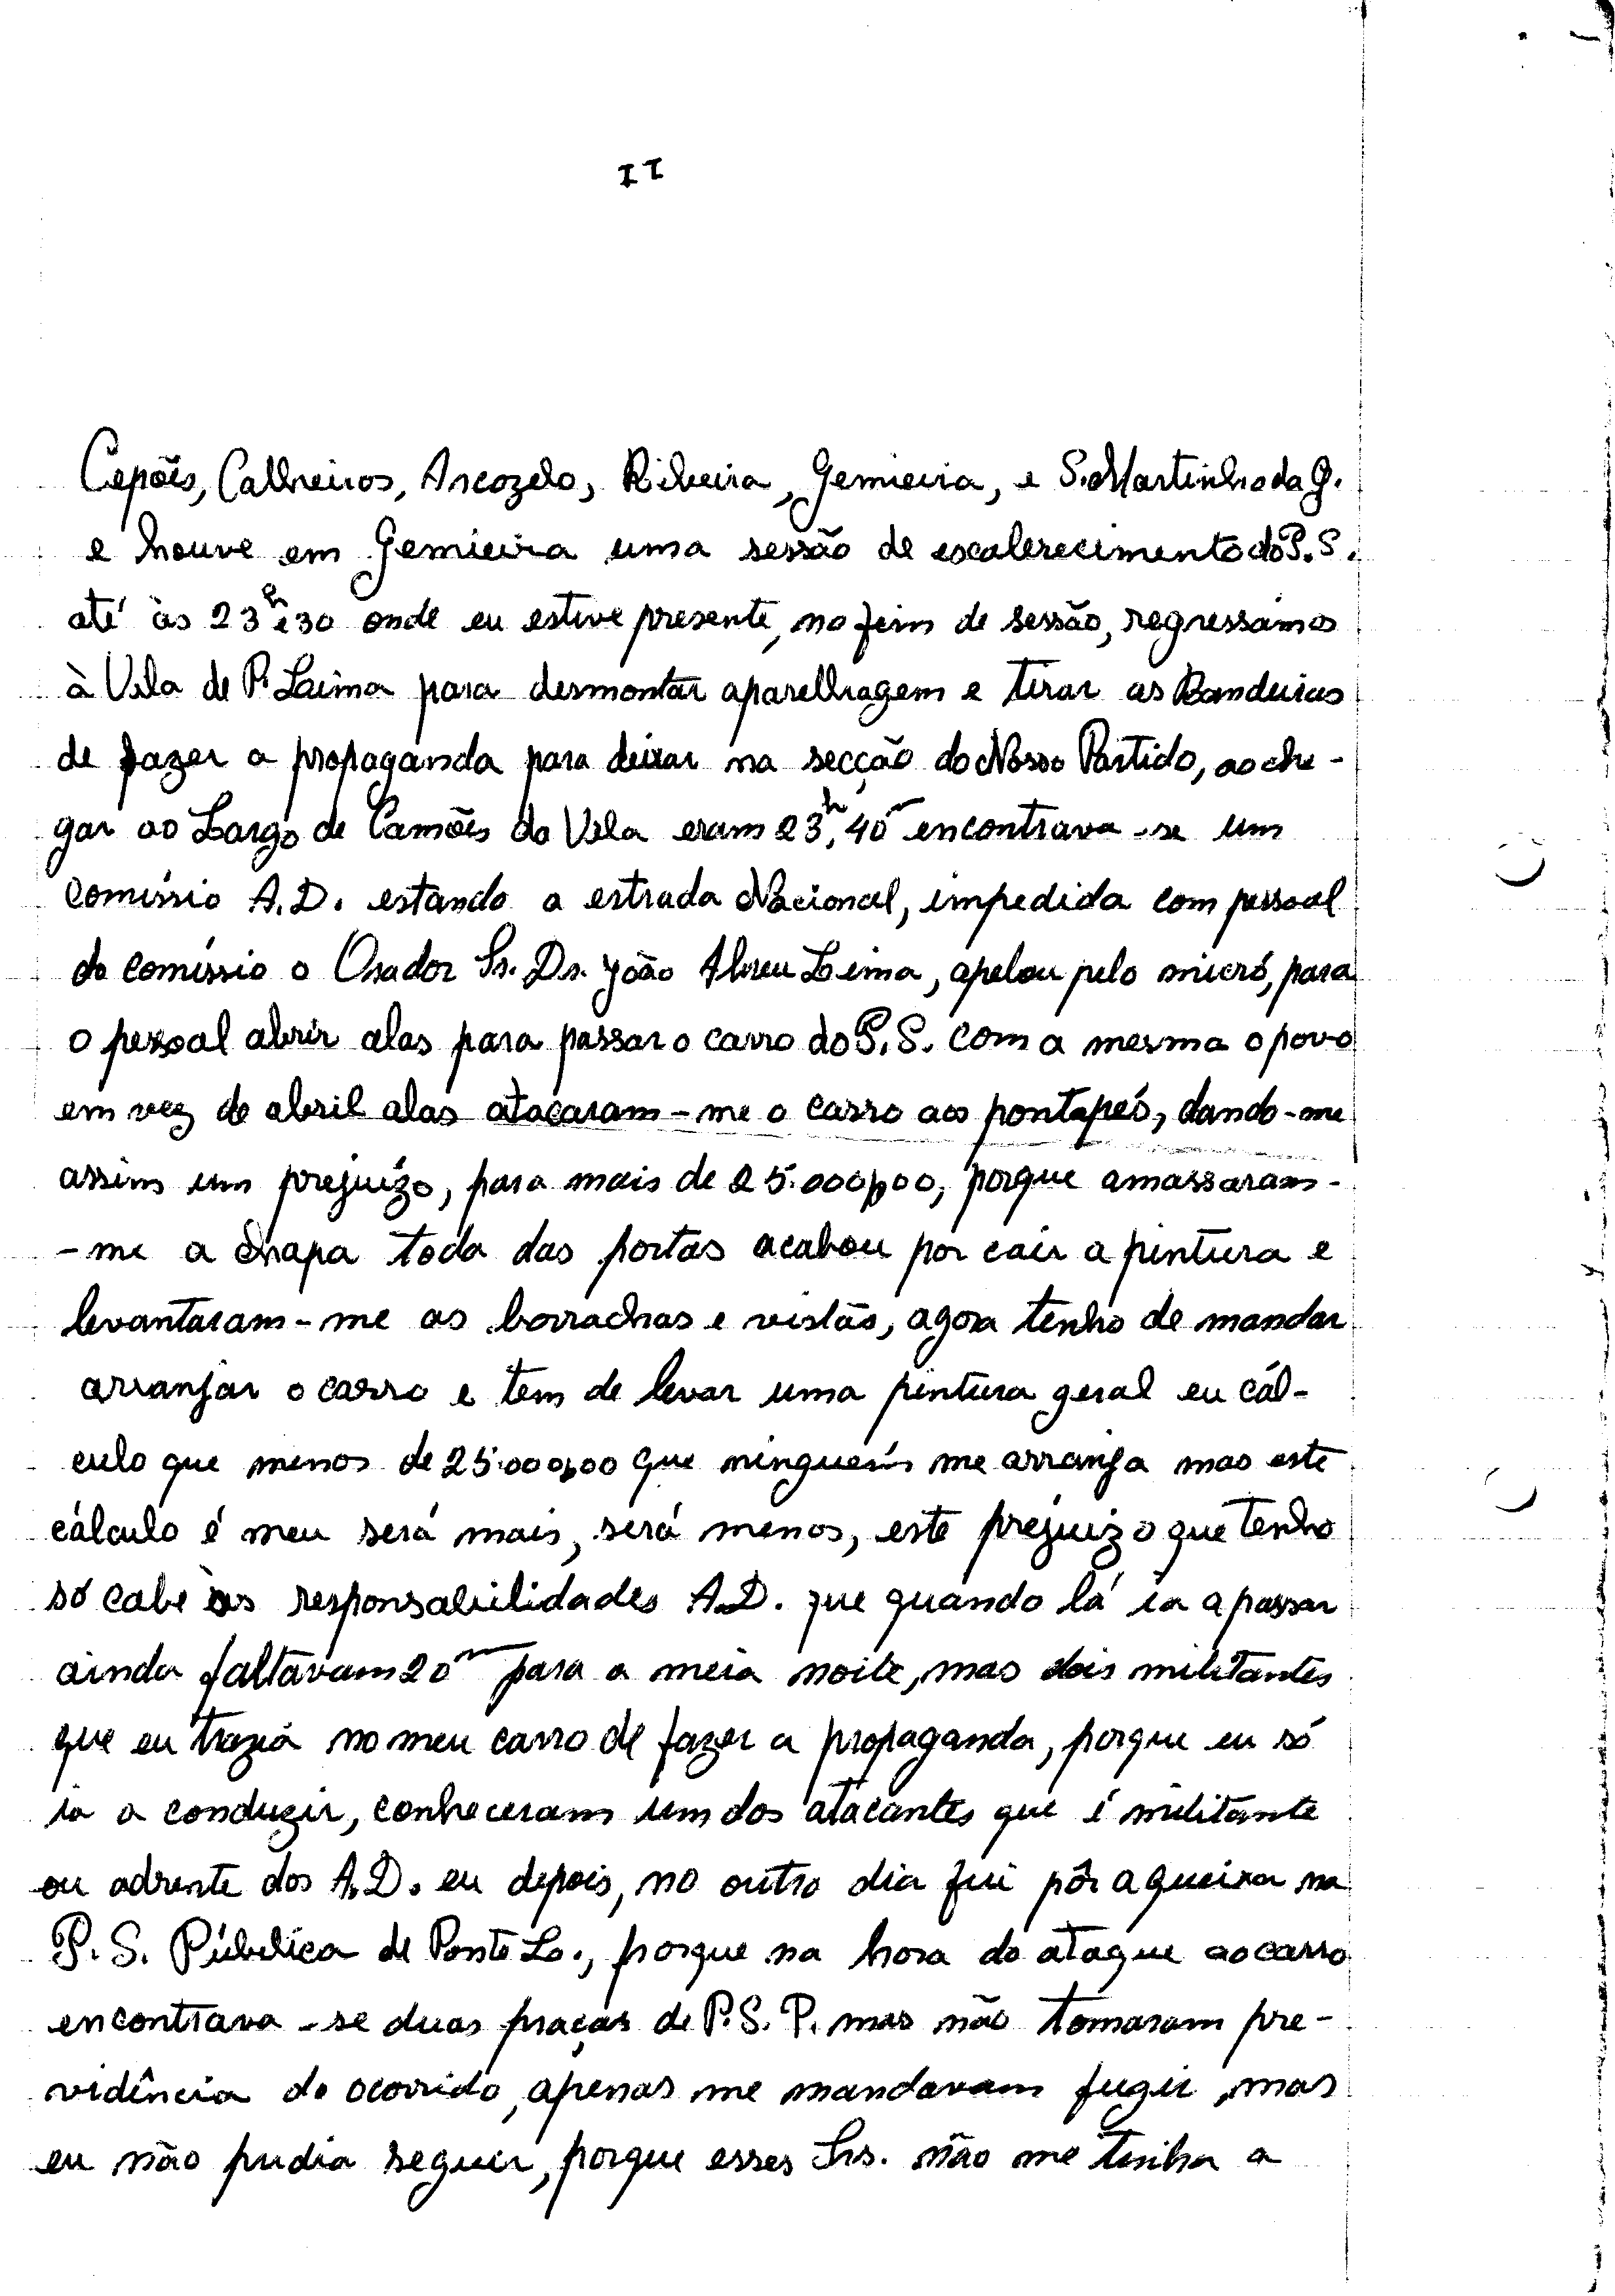 II
Cepões, Calheiros, Arcozelo, Ribeira, Gemieira, e S. Martinho da G.
e houve em Gemieira uma sessão de escalerecimento do P.S.
até às 23h e 30 onde eu estive presente, no fim de sessão, regressamos
à Vila de P. Laima para desmontar aparelhagem e tirar as Bandeiras
de fazer a propaganda para deixar na secção do Nosso Partido, ao che-
gar ao Largo de Camões da Vila eram 23h,40m encontrava-se um
comíssio A.D. estando a estrada Nacional, impedida com pessoal
do comíssio o Orador Sr. Dr. João Abreu Lima, apelou pelo micró, para
o pessoal abrir alas para passar o carro do P.S. com a mesma o povo
em vez de abril alas atacaram-me o carro aos pontapés, dando-me
assim um prejuízo, para mais de 25.000$00, porque amassaram-
-me a chapa toda das portas acabou por cair a pintura e
levantaram-me as borrachas e vistas, agora tenho de mandar
arranjar o carro e tem de levar uma pintura geral eu cál-
culo que menos de 25.000$00 que ninguém me arranja mas este
cálculo é meu será mais, será menos, este prejuizo que tenho
só cabe às responsabilidades A.D. que quando lá ia a passar
ainda faltavam 20m para a meia noite, mas dois militantes
que eu trazia no meu carro de fazer a propaganda, porque eu só
ia a conduzir, conheceram um dos atacantes que é militante
ou adrente dos A.D. eu depois, no outro dia fui pôr a queixa na
P.S. Pública de Ponte L., porque na hora do ataque ao carro
encontrava-se duas praças de P.S.P. mas não tomaram pre-
vidência do ocorrido, apenas me mandavam fugir, mas
eu não pudia seguir, porque esses Srs. não me tinha a